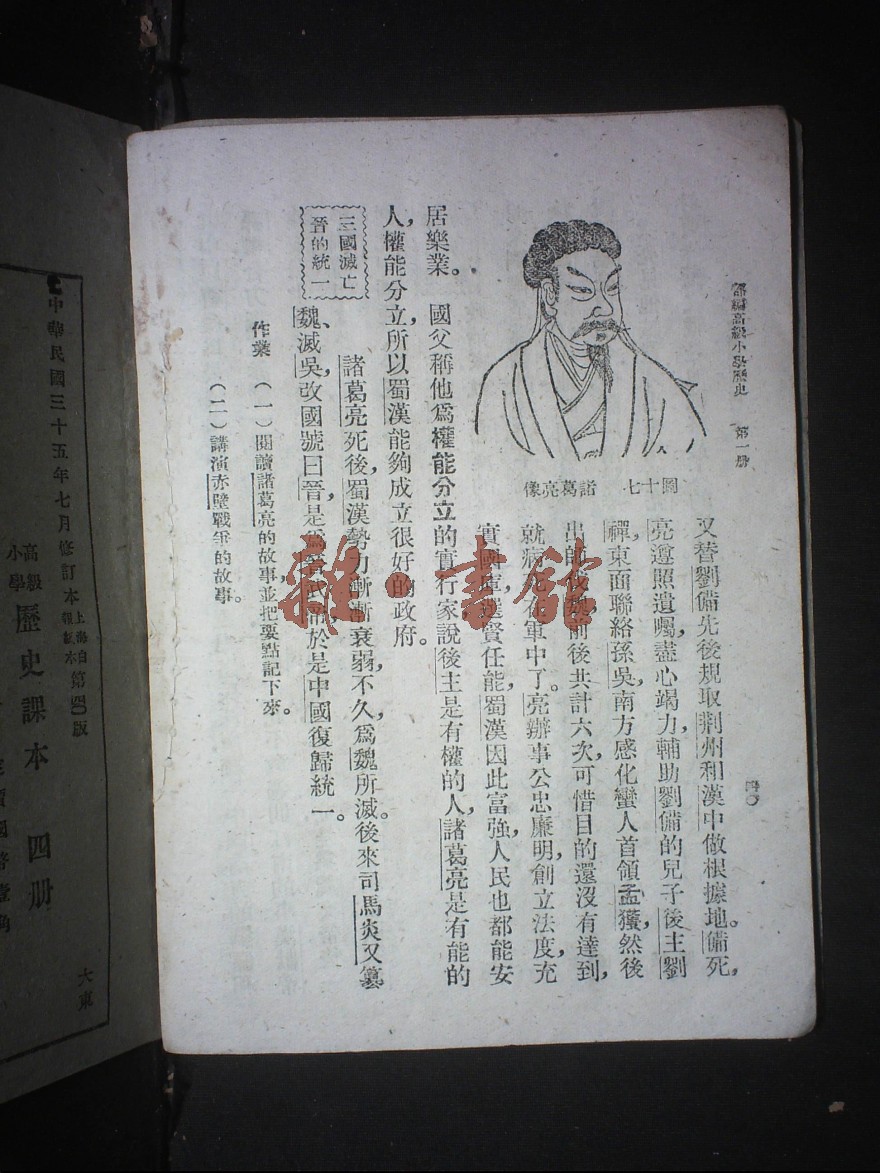 部編高級小學歷史 第一册
四〇
圖十七 諸葛亮像
又替劉備先後規取荆州和漢中做根據地。備死,
亮遵照遺囑,盡心竭力,輔助劉備的兒子後主劉
禪,東面聯絡孫吳,南方感化蠻人首領孟獲,然後
出師伐魏,前後共計六次,可惜目的還沒有達到,
就病死在軍中了。亮辦事公忠廉明,創立法度,充
實國庫,選賢任能,蜀漢因此富強,人民也都能安
居樂業。 國父稱他爲權能分立的實行家,說後主是有權的人,諸葛亮是有能的
人,權能分立,所以蜀漢能夠成立很好的政府。
三國滅亡
晉的統一
諸葛亮死後,蜀漢勢力漸漸衰弱,不久,爲魏所滅。後來司馬炎又篡
魏、滅吳,改國號曰晉,是爲晉武帝,於是中國復歸統一。
作業 (一)閱讀諸葛亮的故事,並把要點記下來。
(二)講演赤壁戰爭的故事。
雜·書館
中華民國三十五年七月修訂本
上海白報紙本
第四〇版
高級小學
歷史課本 四册
定價國幣壹角
大東